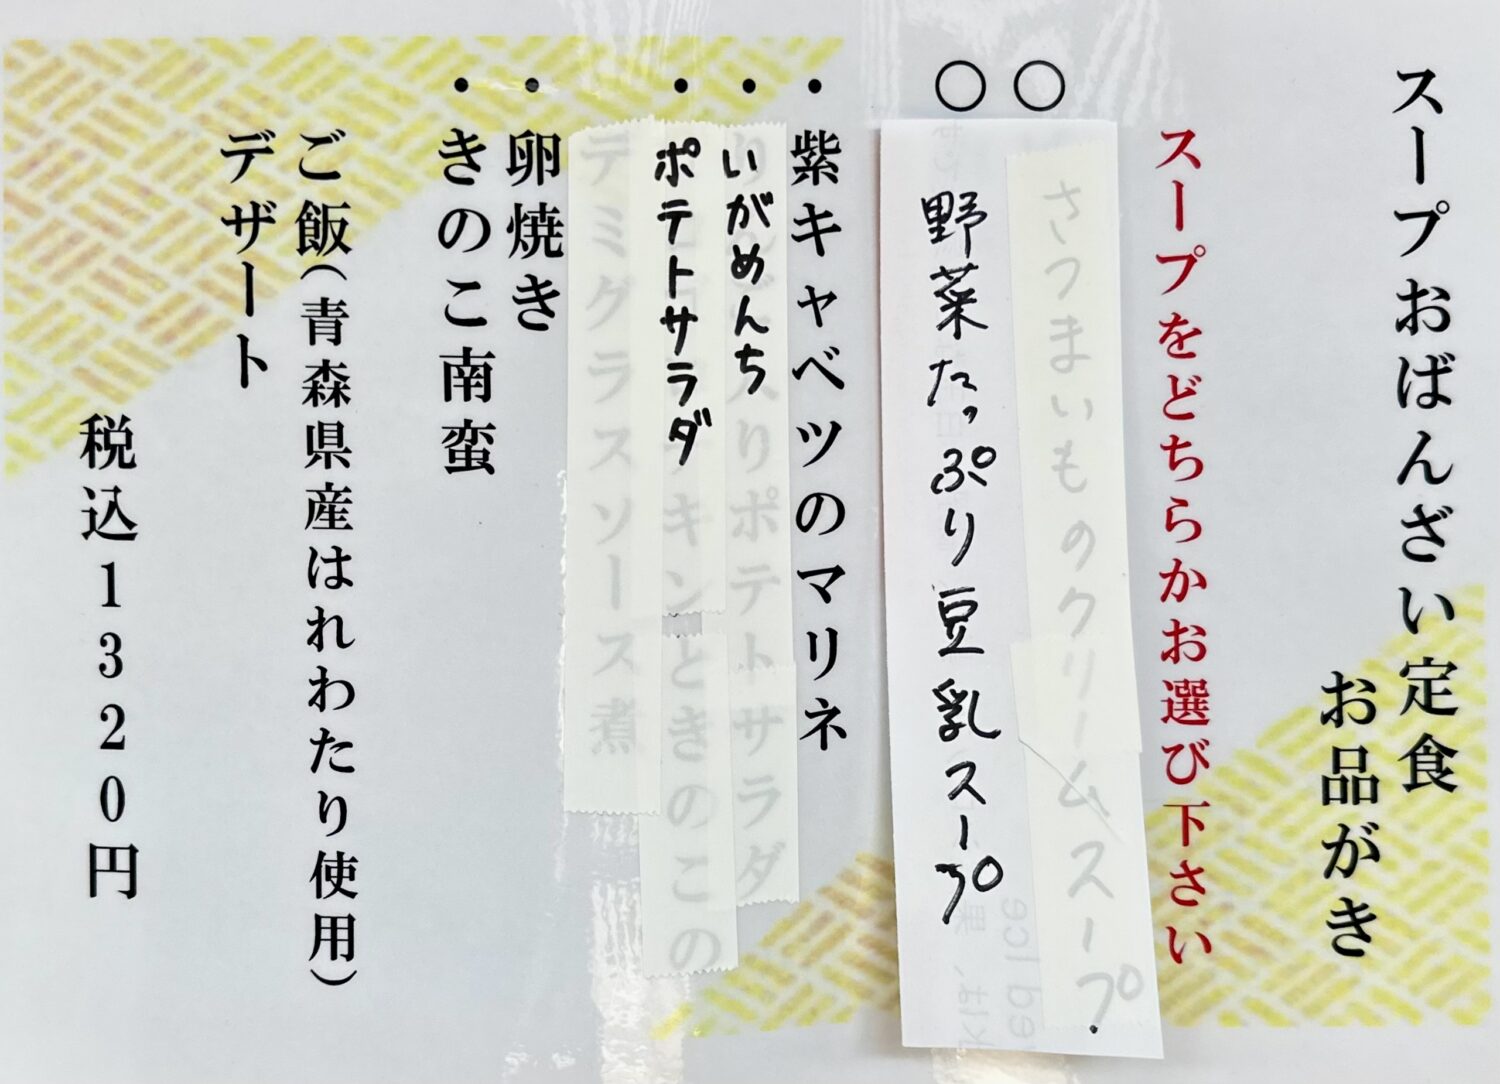 スープおばんざい定食
お品がき
スープをどちらかお選び下さい
○さつまいものクリームスープ
○野菜たっぷり豆乳スープ
・紫キャベツのマリネ
・いがめんち
・ポテトサラダ
デミグラスソース煮
・卵焼き
・きのこ南蛮
ご飯(青森県産はれわたり使用)
デザート
税込1320円